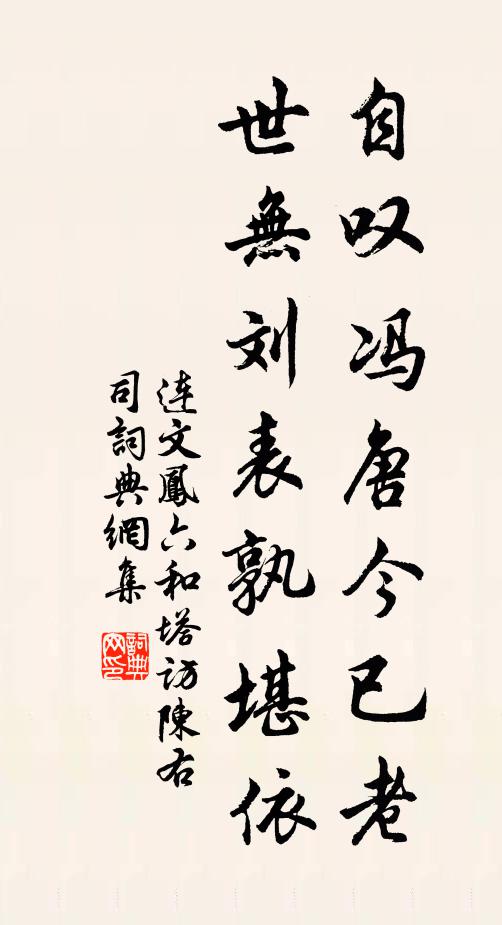 自叹冯唐今已老
世無刘表孰堪依
连文鳳六和塔访陳右
司詞典網集
詞典网印